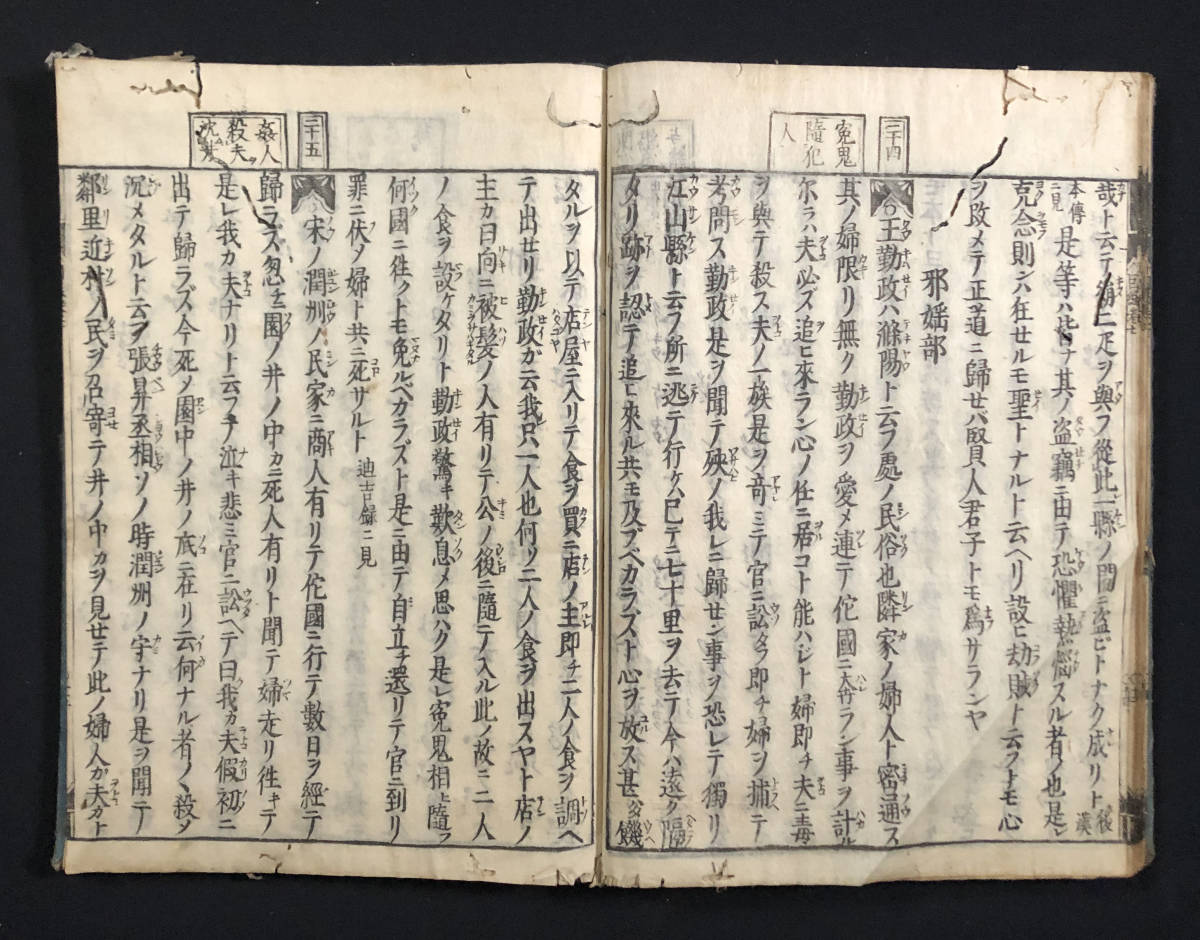 二十四
冤鬼
隨犯
人
哉ト云テ絹二疋ヲ與フ從此一縣ノ間ニ盗ビトナク成リト後漢
本傳ニ見是等ハ皆ナ其ノ盗竊ニ由テ恐懼熱惱スル者ノ也是レ
克念則ンハ狂セルモ聖トナルト云ヘリ設ヒ劫賊ト云フトモ心
ヲ改メテ正道ニ歸セバ賢人君子トモ爲サランヤ
邪婬部
王勤政ハ滁陽ト云フ處ノ民俗也隣家ノ婦人ト密通ス
其ノ婦限リ無ク勤政ヲ愛メ連テ佗國ニ奔ラン事ヲ計ル
尓ラハ夫必ズ追ヒ來ラン心ノ任ニ居コト能ハジト婦即チ夫ニ毒
ヲ與テ殺ス夫ノ一族是ヲ竒ミテ官ニ訟タフ即チ婦ヲ捕テ
考問ス勤政是ヲ聞テ殃ノ我レニ歸セン事ヲ恐レテ獨リ
江山縣ト云フ所ニ逃テ行ケハ已テニ七十里ヲ去テ今ハ遠ク隔
タリ跡ヲ認テ追ヒ來ル共モ及ブベカラズト心ヲ放ス甚ハダ饑
二十五
姦人
殺夫
沈井
タルヲ以テ店屋ニ入リテ食ヲ買ニ店ノ主即チ二人ノ食ヲ調ヘ
テ出セリ勤政ガ云我レ只一人也何ソ二人ノ食ヲ出スヤト店ノ
主カ曰向ニ被髮ノ人有リテ公ノ後ニ隨テ入ル此ノ故ニ二人
ノ食ヲ設ケタリト勤政驚キ歎息メ思ハク是レ寃鬼相ヒ隨フ
何國ニ徃クトモ免ルベカラズト是ニ由テ自立チ還リテ官ニ到リ
罪ニ伏タ婦ト共ニ死サルト 迪吉録ニ見
宋ノ潤州ノ民家ニ商人有リテ佗國ニ行テ數日ヲ經テ
歸ラズ忽チ園ノ井ノ中カニ死人有リト聞テ婦走リ徃キテ
是レ我カ夫ナリト云フテ泣キ悲ミ官ニ訟ヘテ曰我カ夫假初ニ
出テ歸ラズ今死ノ園中ノ井ノ底ニ在リ云何ナル者ノヽ殺メ
沉メタルト云フ張昇丞相ソノ時潤州ノ守ナリ是ヲ聞テ
鄰里近村ノ民ヲ召寄テ井ノ中カヲ見セテ此ノ婦人ガ夫カト